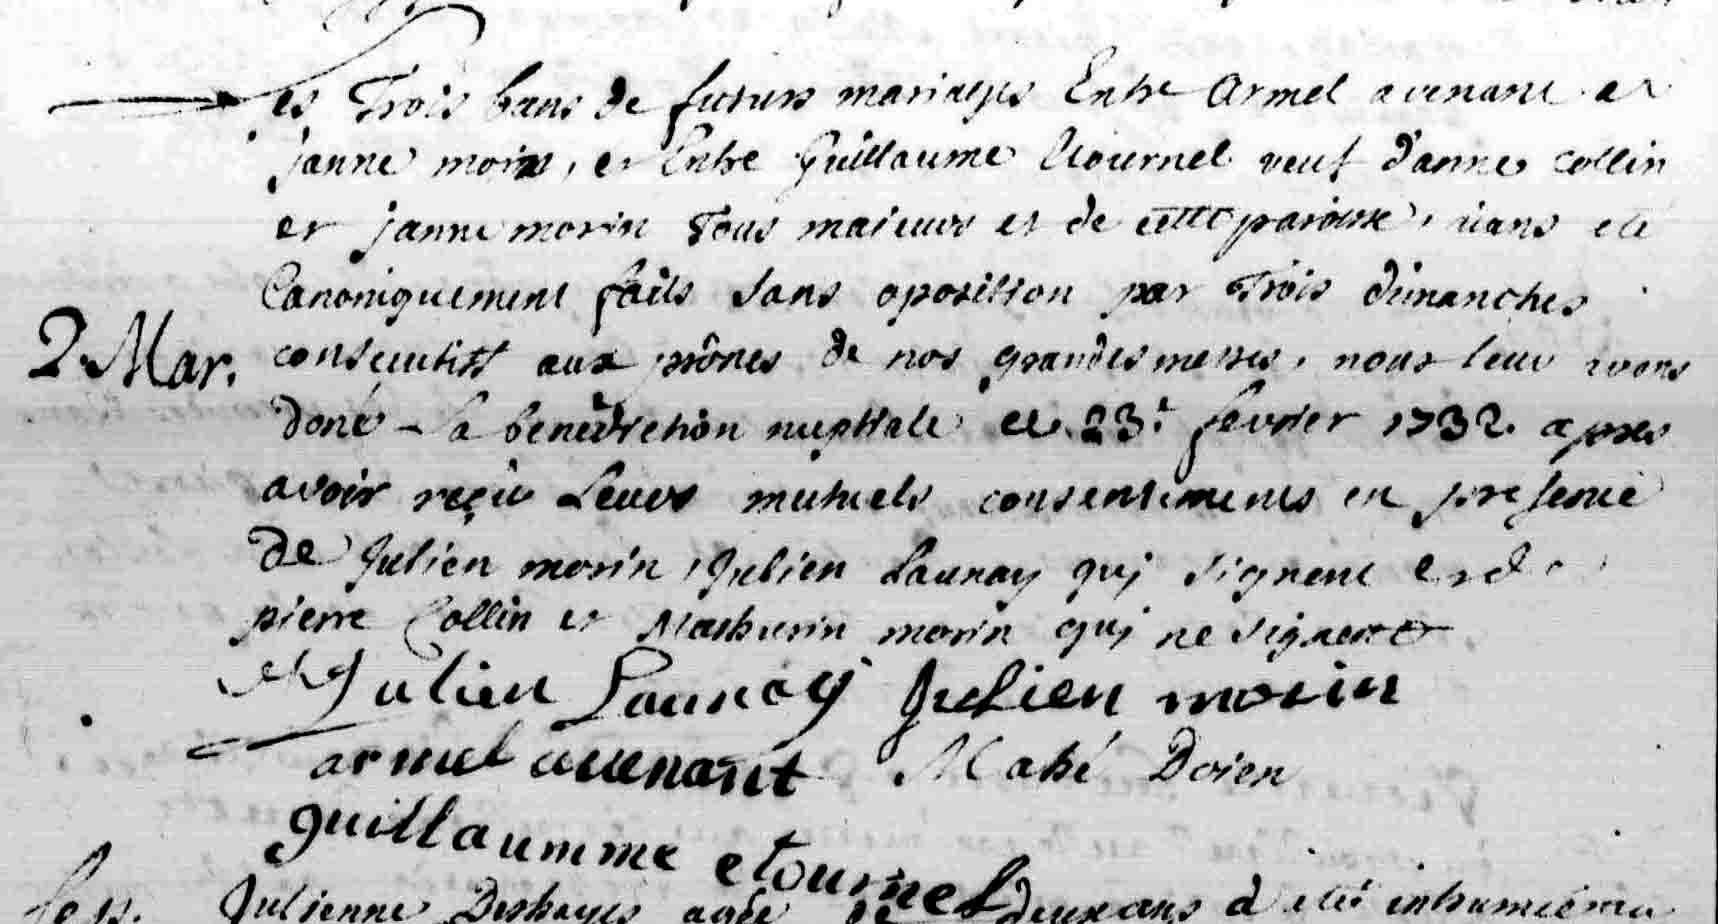 es Trois bans de futurs mariages Entre Armel avenant et
janne morin, et Entre Guillaume Etournel veuf d'anne collin
et janne morin Tous majeurs et de cette paroisse, aians eté
Canoniquement faits sans oposition par Trois dimanches
2. Mar. consecutifs aux prônes de nos grandes messes, nous leur avons
doné la benediction nuptiale ce 23e fevrier 1732. apres
avoir reçu Leurs mutuels consentements en presence
de Julien morin, Julien Launay qui signent et de
pierre Collin et Mathurin morin qui ne signent
Julien Launay Julien morin
armel auenant Mahé Doien
guillaumme etournel
Sep. Julienne Deshayes agée de deux ans a eté inhumée